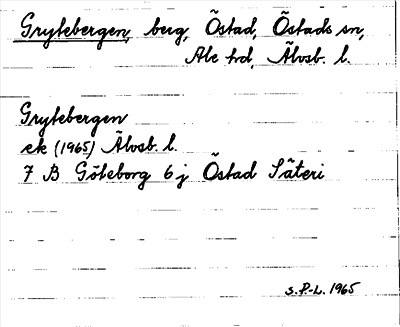 Grytebergen, berg, Östad, Östads sn,
Ale hd, Älvsb. l.
Grytebergen
ek (1965) Älvsb. l.
7 B Göteborg 6 j Östad Säteri
s. P.-L. 1965